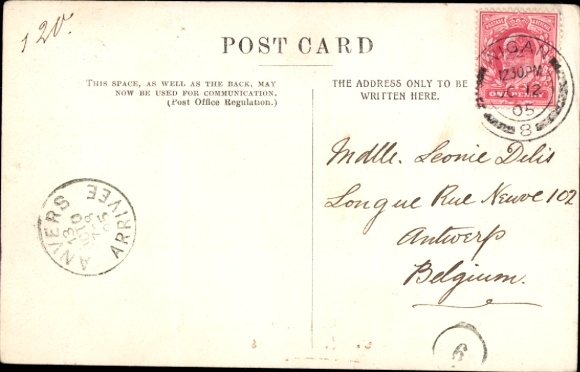 120.
POST CARD
THIS SPACE, AS WELL AS THE BACK, MAY
NOW BE USED FOR COMMUNICATION.
(Post Office Regulation.)
THE ADDRESS ONLY TO BE
WRITTEN HERE.
ONE PENNY
WIGAN
12.30 PM
12
05
8
Mdlle. Leonie Delis
Longue Rue Neuve 102
Antwerp
Belgium.
ANVERS
ARRIVÉE
6